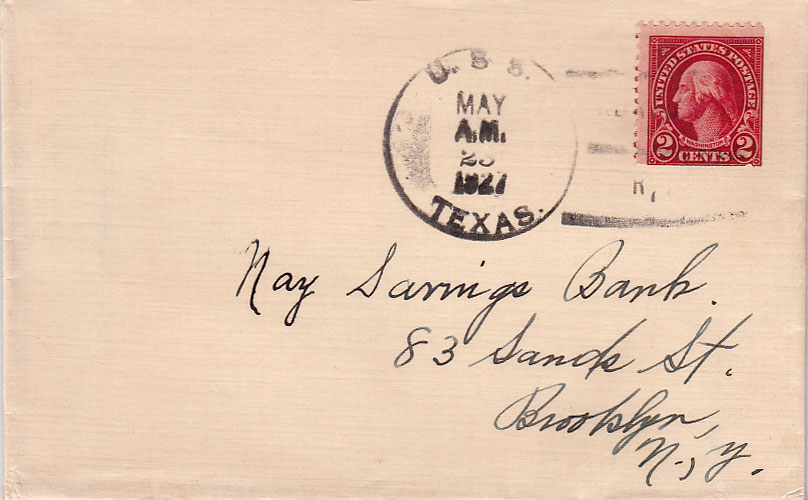 U. S. S.
MAY
A.M.
1927
TEXAS.
UNITED STATES POSTAGE
WASHINGTON
2 CENTS 2
Nay Savings Bank.
83 Sands St.
Brooklyn,
N., Y.